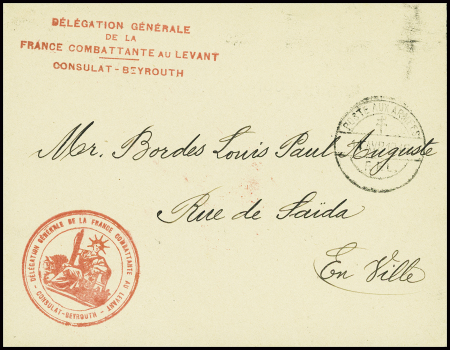 DÉLÉGATION GÉNÉRALE
DE LA
FRANCE COMBATTANTE AU LEVANT
CONSULAT-BEYROUTH
POSTE AUX ARMÉES
Mr. Bordes Louis Paul Auguste
Rue de Saïda
En Ville
DÉLÉGATION GÉNÉRALE DE LA FRANCE COMBATTANTE AU LEVANT
- CONSULAT-BEYROUTH -